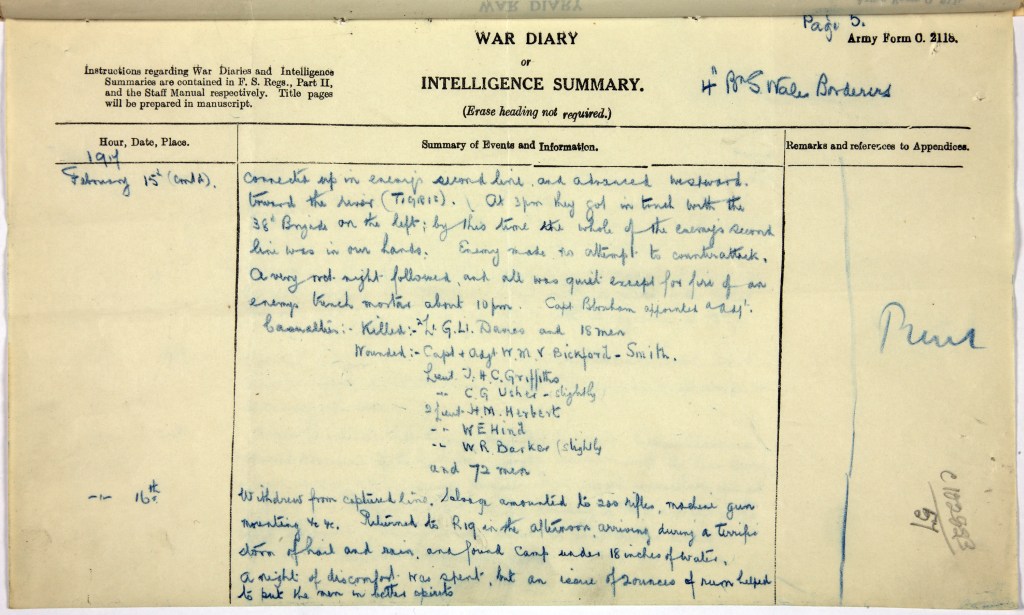 WAR DIARY
Page 5.
WAR DIARY
or
INTELLIGENCE SUMMARY.
(Erase heading not required.)
Army Form C. 2118.
Instructions regarding War Diaries and Intelligence
Summaries are contained in F. S. Regs., Part II,
and the Staff Manual respectively. Title pages
will be prepared in manuscript.
4th Bn S. Wales Borderers
Hour, Date, Place.
Summary of Events and Information.
Remarks and references to Appendices.
1917
February 15th (contd).
connected up in enemy's second line, and advanced westward
toward the river (TIGRIS). At 3pm they got in touch with the
38th Brigade on the left; by this time the whole of the enemy's second
line was in our hands. Enemy made no attempt to counterattack.
A very wet night followed, and all was quiet except for fire of an
enemy trench mortar about 10pm. Capt appointed a/Adjt.
Casualties:- Killed:- 2Lt G.Ll. Davies and 18 men
Wounded:- Capt & Adjt W.M.V Bickford-Smith.
Lieut J.H.C. Griffiths
-- C G Usher - slightly
2 Lieut H.M. Herbert
-- W E Hind
-- W.R. Barker (slightly
and 72 men
-- 16th
Withdrew from captured line. Salvage amounted to 200 rifles, machine gun
mounting &c &c. Returned to in the afternoon arriving during a terrific
storm of hail and rain, and found camp under 18 inches of water.
A night of discomfort was spent, but an issue of 2 ounces of rum helped
to put the men in better spirits